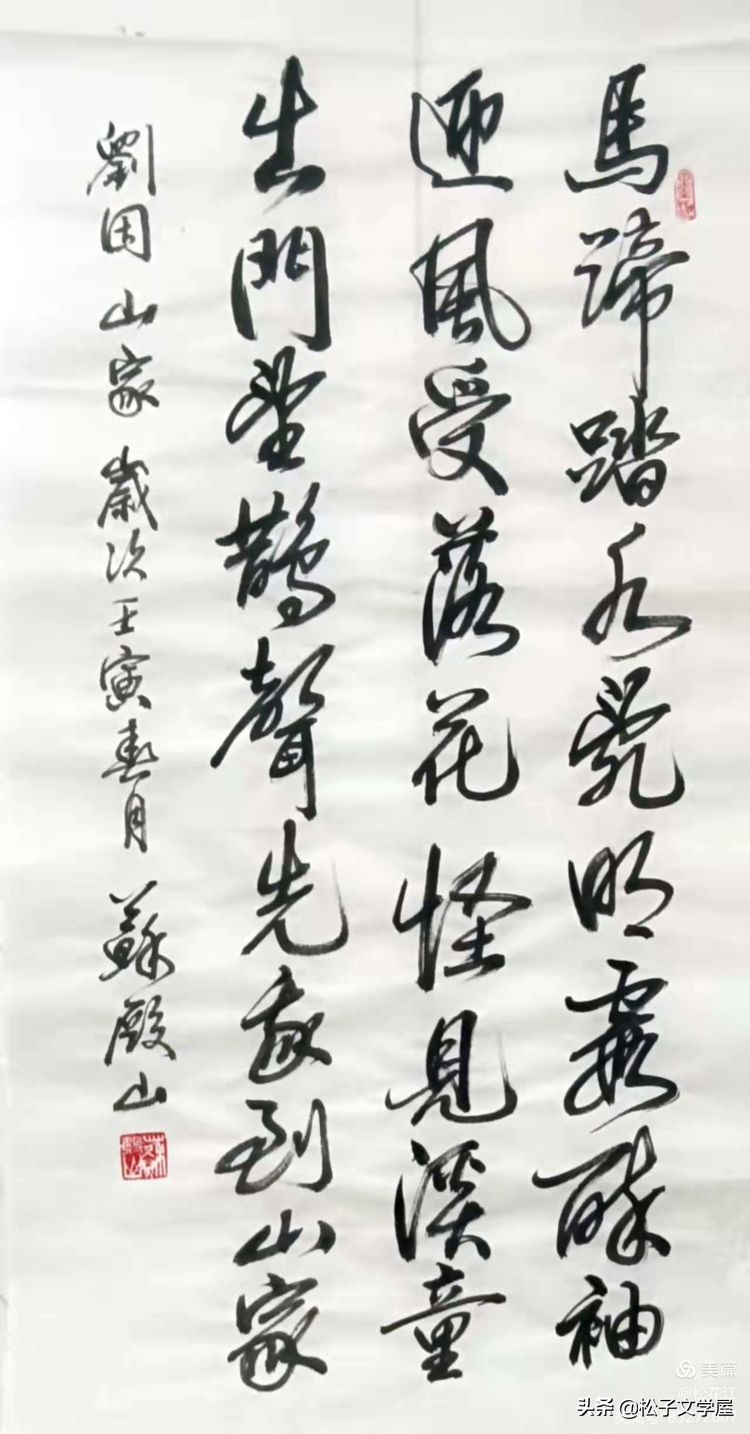 馬蹄踏水亂明霞醉袖
迎風受落花怪見溪童
出門望鵲聲先我到山家
劉因山家 歲次壬寅春月 蘇殿山
美篇
头条 @松子文学屋